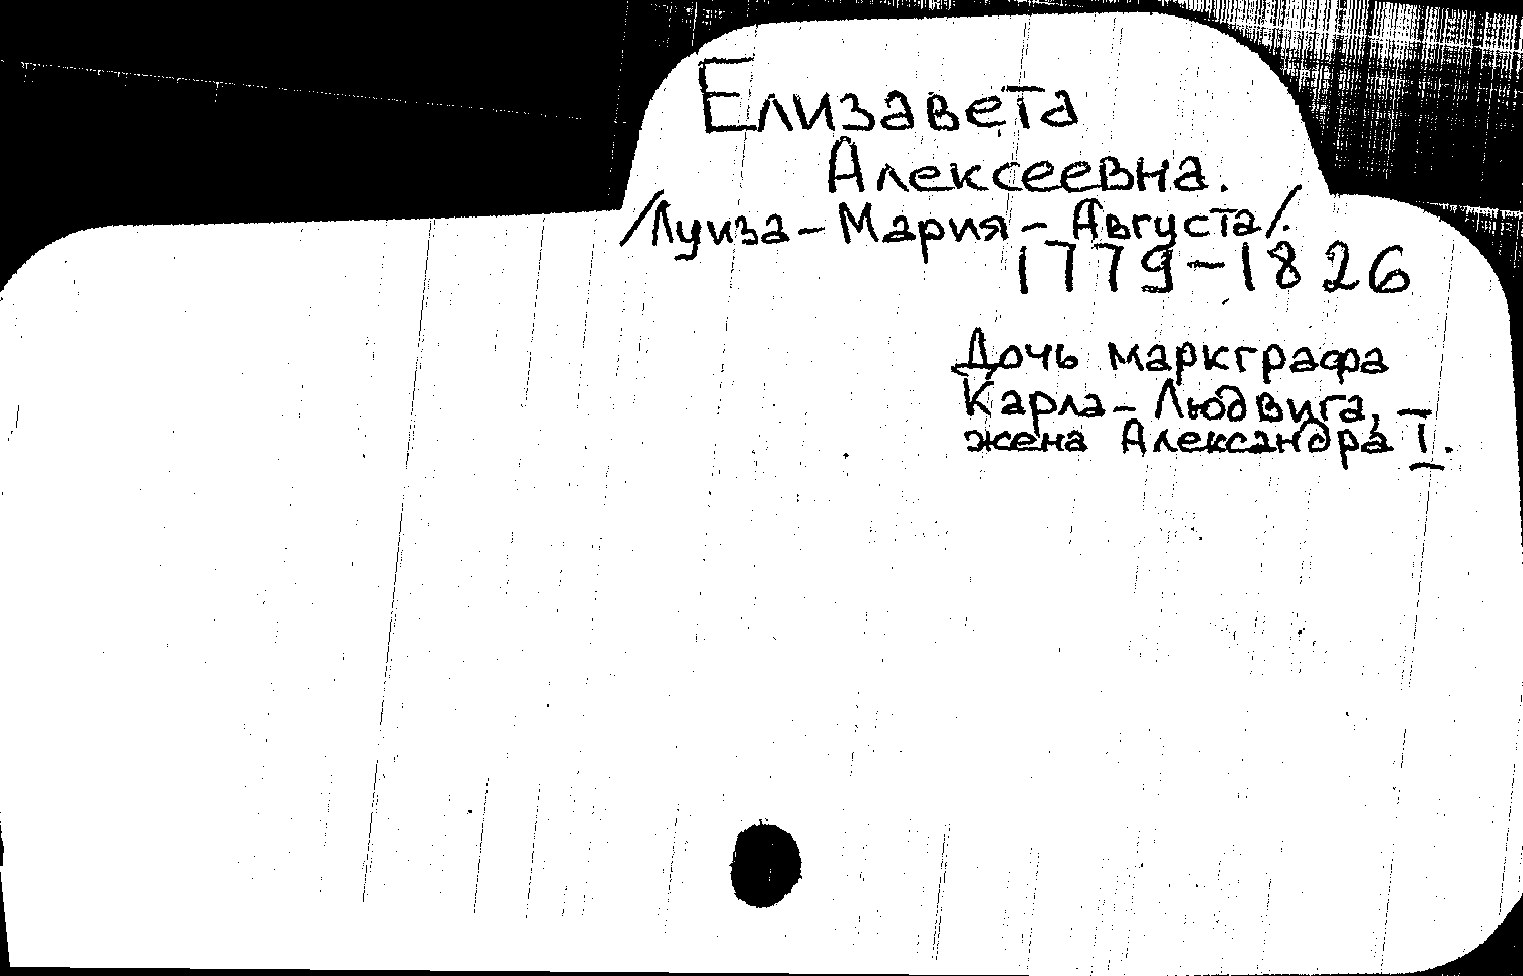 Елизавета
Алексеевна.
/Луиза-Мария-Августа/.
1779-1826
Дочь маркграфа
Карла-Людвига, -
жена Александра I.